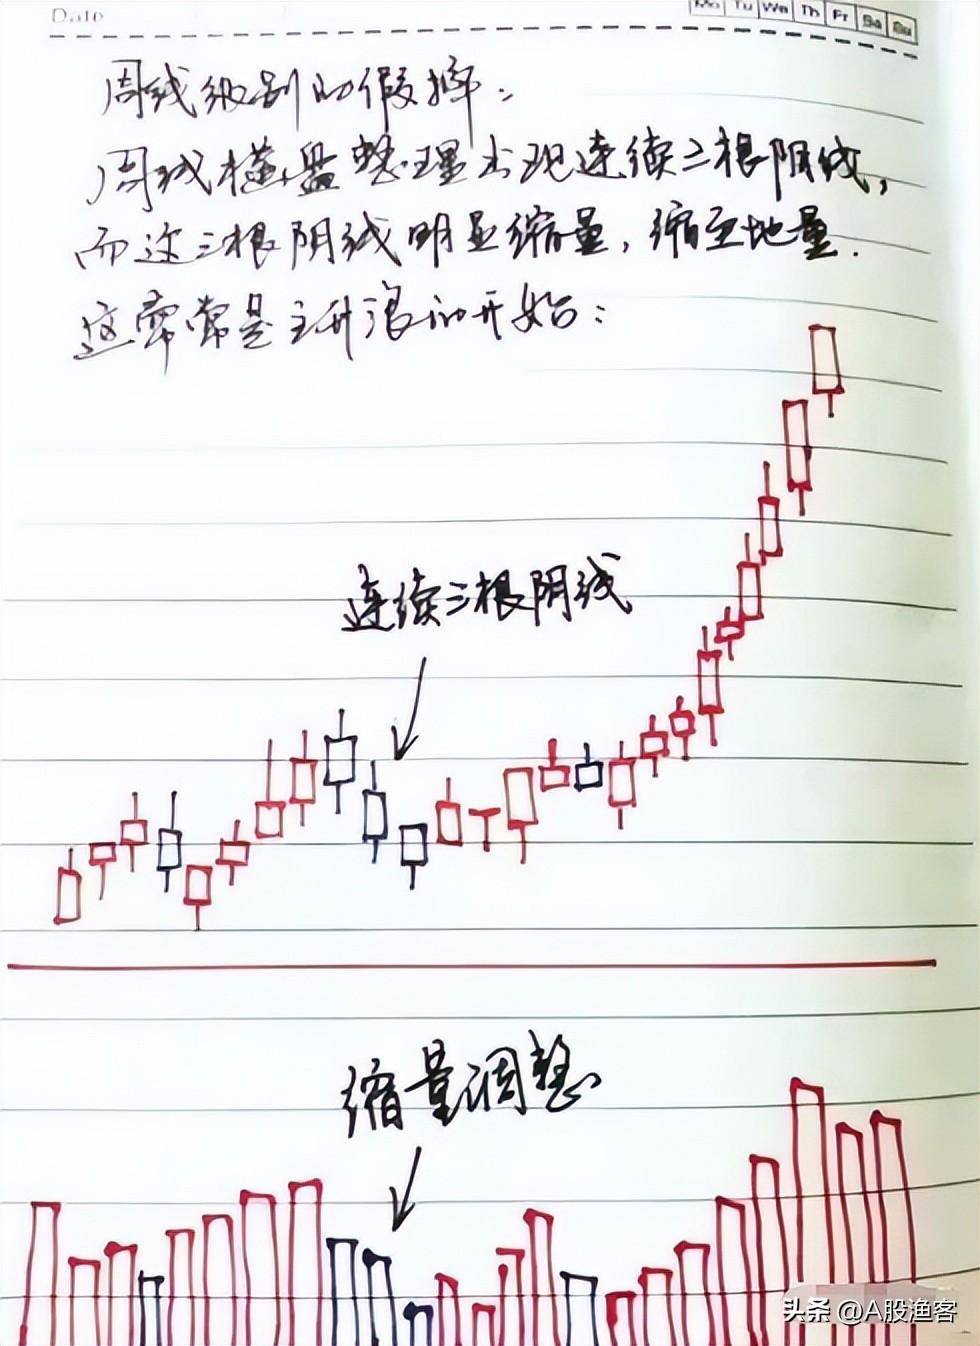 Date
Mo Tu We Th Fr Sa Su
周线级别的假摔：
周线横盘整理出现连续三根阴线，
而这三根阴线明显缩量，缩至地量．
这常常是主升浪的开始：
连续三根阴线
缩量调整
头条 @A股渔客